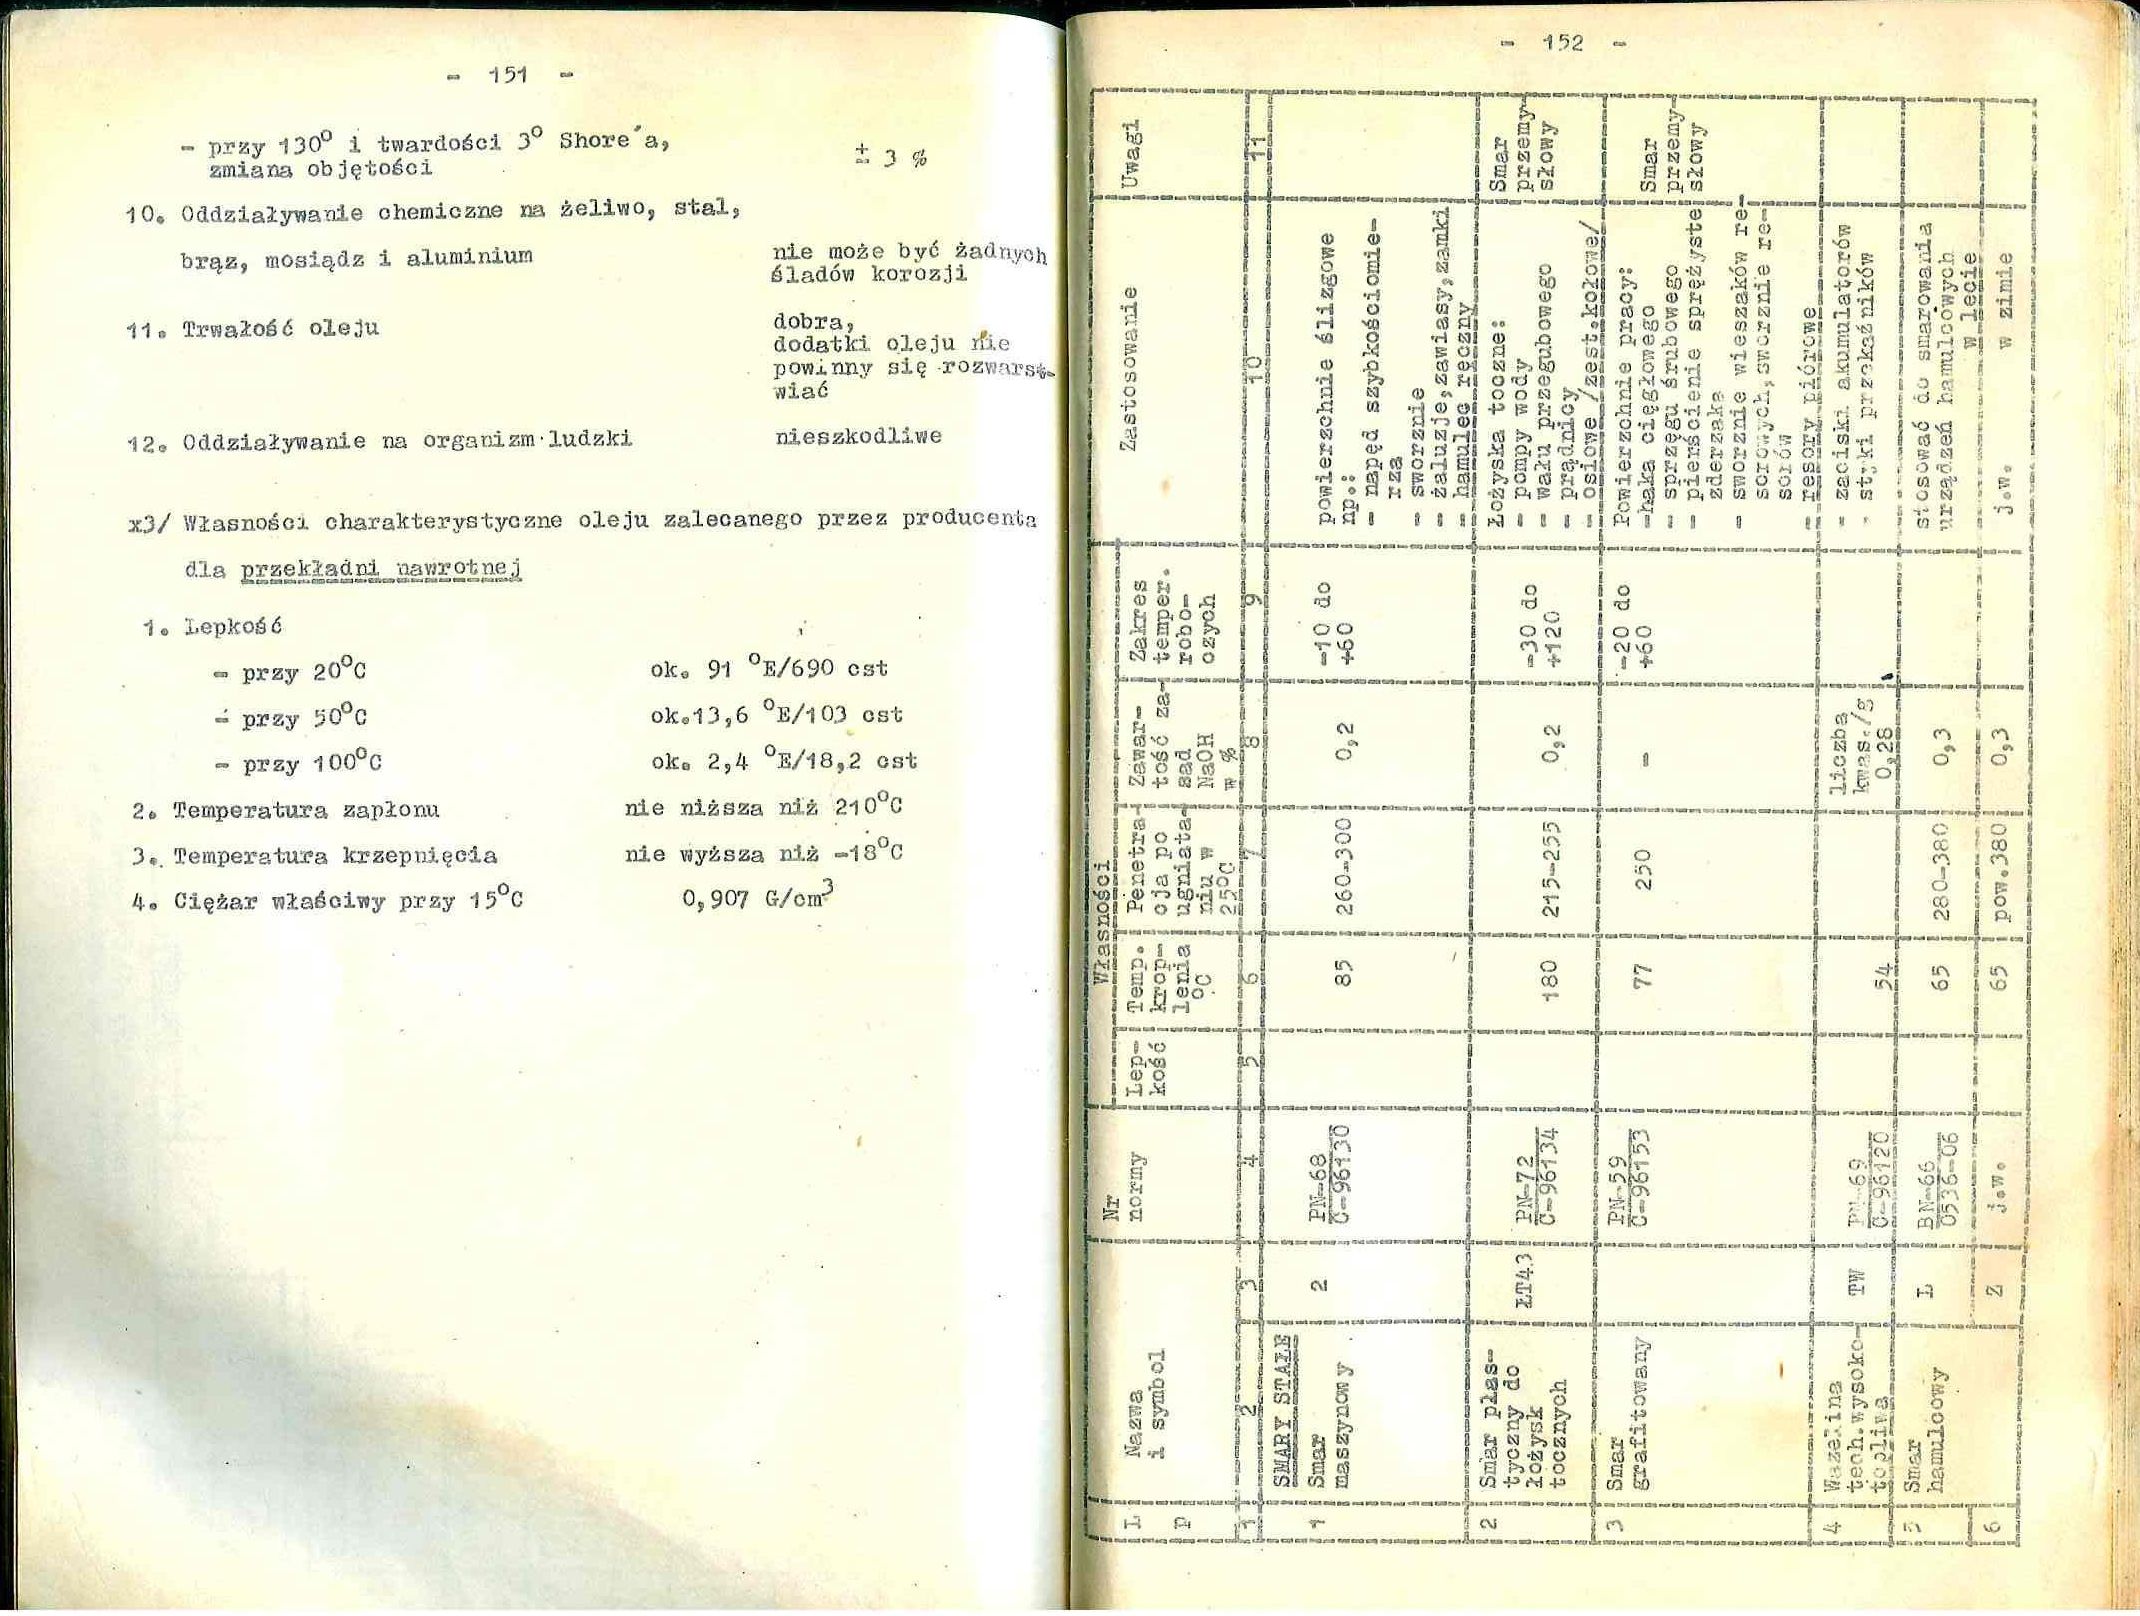 - 151 -
- przy 130° i twardości 3° Shore'a,
zmiana objętości
± 3 %
10. Oddziaływanie chemiczne na żeliwo, stal,
brąz, mosiądz i aluminium
nie może być żadnych
śladów korozji
11. Trwałość oleju
dobra,
dodatki oleju nie
powinny się rozwarst-
wiać
12. Oddziaływanie na organizm ludzki nieszkodliwe
x3/ Własności charakterystyczne oleju zalecanego przez producenta
dla przekładni nawrotnej
1. Lepkość
- przy 20°C ok. 91 °E/690 cst
- przy 50°C ok.13,6 °E/103 cst
- przy 100°C ok. 2,4 °E/18,2 cst
2. Temperatura zapłonu nie niższa niż 210°C
3. Temperatura krzepnięcia nie wyższa niż -18°C
4. Ciężar właściwy przy 15°C 0,907 G/cm³
- 152 -
L
p
Nazwa
i symbol
Nr
normy
Własności
Lep-
kość
Temp.
krop-
lenia
°C
Penetra-
cja po
ugniata-
niu w
25°C
Zawar-
tość za-
sad
NaOH
w %
Zakres
temper.
robo-
czych
Zastosowanie
Uwagi
1 2 3 4 5 6 7 8 9 10 11
SMARY STAŁE
1
Smar
maszynowy
2
PN-68
C-96130
85
260-300
0,2
-10 do
+60
powierzchnie ślizgowe
np.:
- napęd szybkościomie-
rza
- sworznie
- żaluzje,zawiasy,zamki
- hamulec ręczny
2
Smar plas-
tyczny do
łożysk
tocznych
ŁT43
PN-72
C-96134
180
215-255
0,2
-30 do
+120
Łożyska toczne:
- pompy wody
- wału przegubowego
- prądnicy
- osiowe /zest.kołowe/
Smar
przemy-
słowy
3
Smar
grafitowany
PN-59
C-96153
77
250
-
-20 do
+60
Powierzchnie pracy:
-haka cięgłowego
- sprzęgu śrubowego
- pierścienie sprężyste
zderzaka
- sworznie wieszaków re-
sorowych,sworznie re-
sorów
- resory piórowe
Smar
przemy-
słowy
4
Wazelina
tech.wysoko-
topliwa
TW
PN-69
C-96120
54
liczba
kwas./g
0,28
- zaciski akumulatorów
- styki przekaźników
5
Smar
hamulcowy
L
BN-66
0536-06
65
280-380
0,3
stosować do smarowania
urządzeń hamulcowych
w lecie
6
Z
j.w.
65
pow.380
0,3
j.w. w zimie